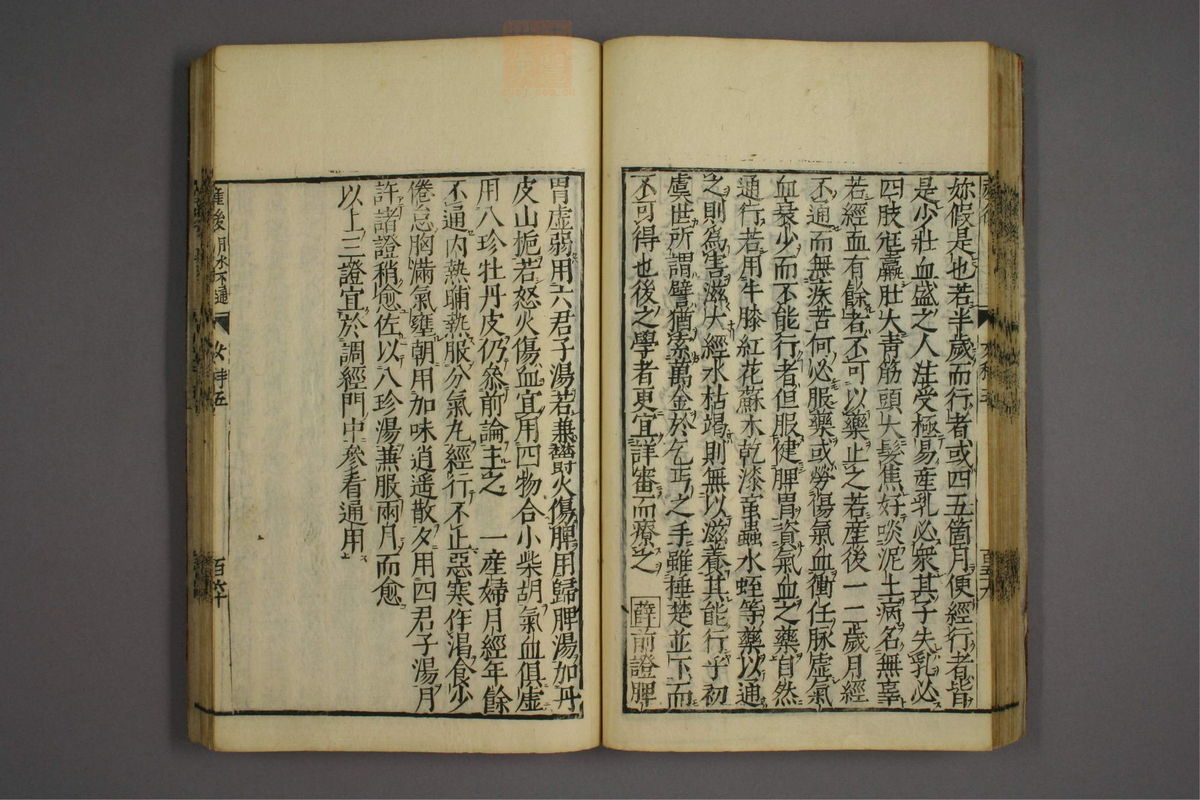 妳假是也若半歲而行者或四五箇月便經行者皆
是少壯血盛之人注受極易産乳必衆其子失乳必
四肢尩羸肚大青筋頭大髮焦好啖泥土病名無辜
若經血有餘者不可以藥止之若産後一二歲月經
不通而無疾苦何必服藥或勞傷氣血衝任脉虛氣
血衰少而不能行者但服健脾胃資氣血之藥自然
通行若用牛膝紅花蘇木乾漆䖟蟲水蛭等藥以通
之則為害滋大經水枯竭則無以滋養其能行乎初
虞世所謂譬猶索萬金於乞丐之手雖捶楚並下而
不可得也後之學者更宜詳審而療之 薛前證脾
胃虛弱用六君子湯若兼鬱火傷脾用歸脾湯加丹
皮山梔若怒火傷血宜用四物合小柴胡氣血俱虛
用八珍牡丹皮仍叅前論主之 一産婦月經年餘
不通内熱晡熱服分氣丸經行不止惡寒作渴食少
倦怠胸滿氣壅朝用加味逍遥散夕用四君子湯月
許諸證稍愈佐以八珍湯兼服兩月而愈
以上三證宜於調經門中參看通用
産後月水不通